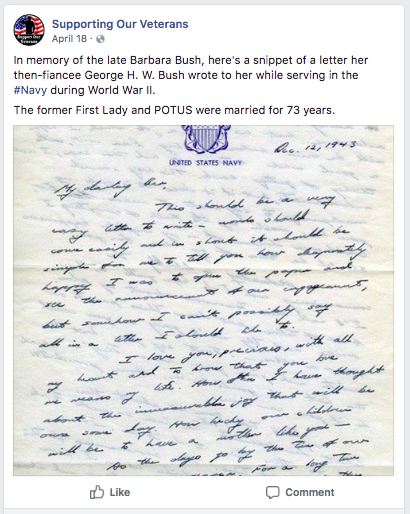 Supporting Our Veterans
April 18 ·
In memory of the late Barbara Bush, here's a snippet of a letter her
then-fiancee George H. W. Bush wrote to her while serving in the
#Navy during World War II.
The former First Lady and POTUS were married for 73 years.
UNITED STATES NAVY
Dec. 12, 1943
My darling Bar,
This should be a very
easy letter to write – words should
come easily and in short it should be
simple for me to tell you how desperately
happy I was to open the paper and
see the announcement of our engagement,
but somehow I can't possibly say
all in a letter I should like to.
I love you, precious, with all
my heart and to know that you love
me means my life. How often I have thought
about the immeasurable joy that will be
ours some day. How lucky our children
will be to have a mother like you –
As the days go by the time of our
For a long time
Like
Comment